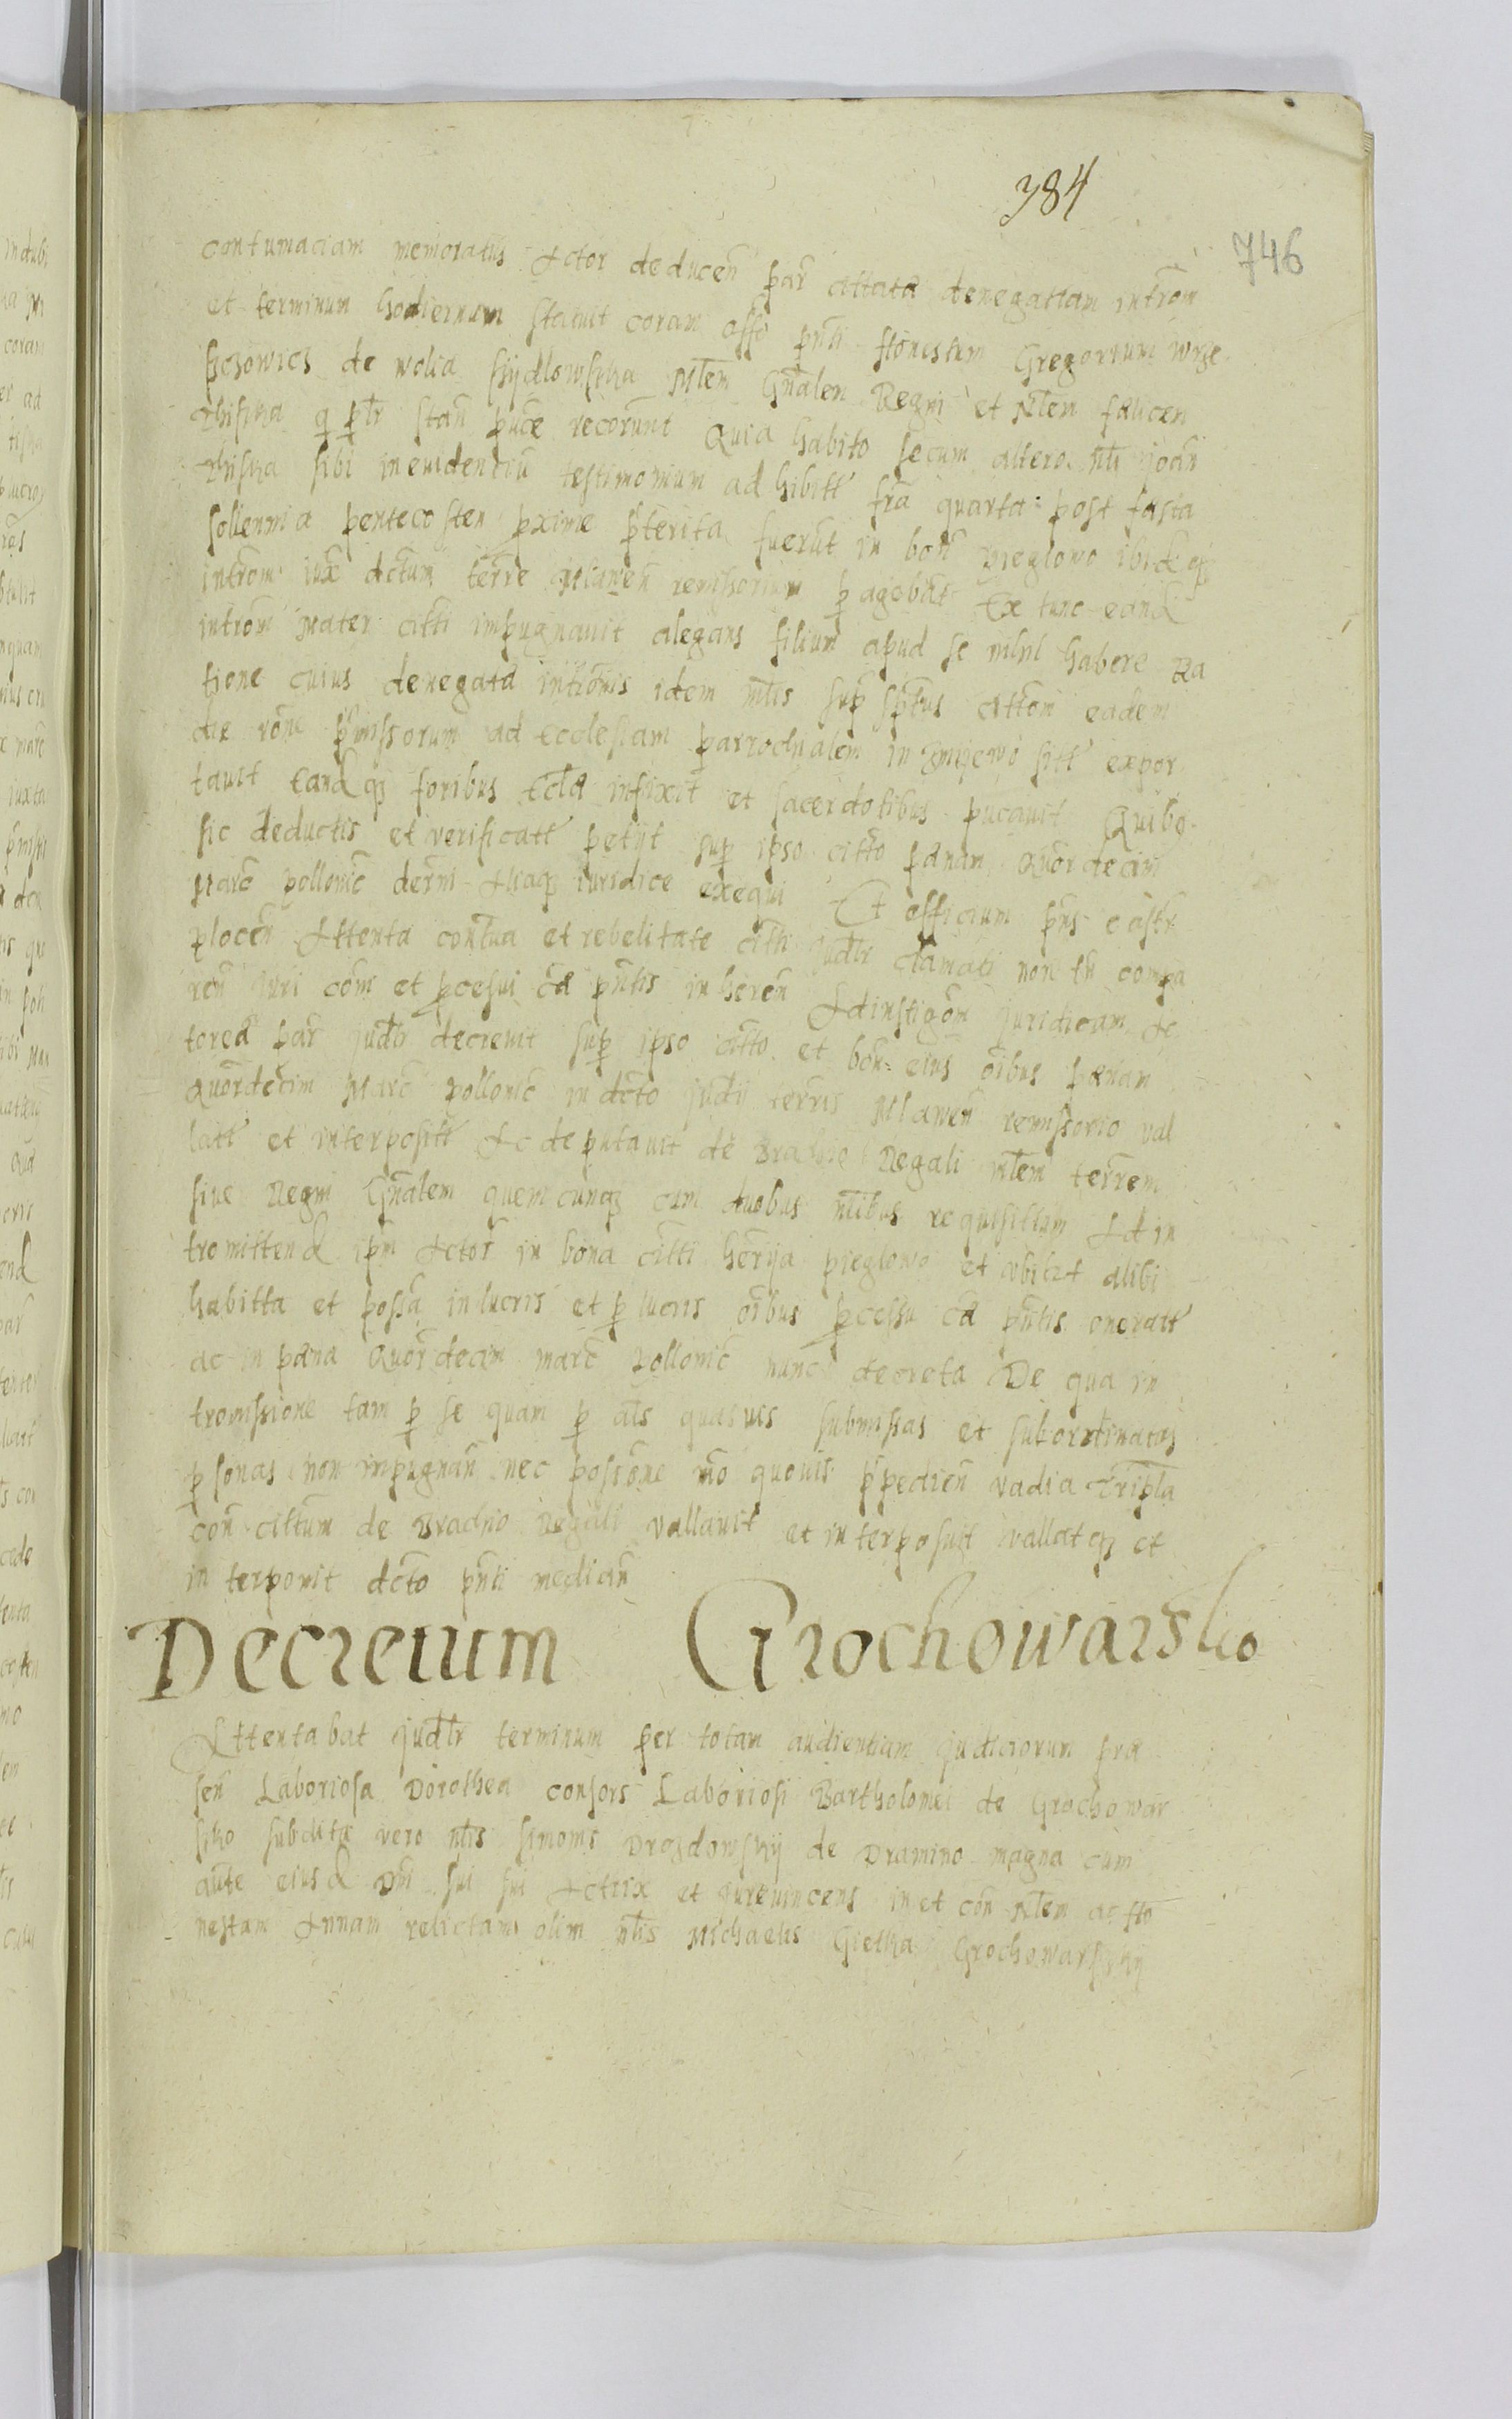 384
746
contumaciam memoratus Actor deducen par cittata denegatam introm
et terminum hodiernum statuit coram offo pnti Honestum Gregorium Wrze
sczowicz de wolia Szydlowska Mlem Gnalem Regni et Nlem falicen
Rhiska q ptr stan puce recorunt Quia habito secum altero nli joan
Rhiska sibi in euidentiu testimonium ad hibitt fra quarta post fasta
sollennia pentecosten pxime pterita fuerut in bon Pieglowo ibidq
introm iux dctum terre Mlawen remissorium p agebat Ex tunc eand
introm Mater citti impugnauit alegans filium apud se nihil habere Ra
tione cuius denegata intromis idem mlis sup sptus cittom eadem
die rone pmissorum ad Ecclesiam parrochialem in Zmijewo sitt expor
tauit Eandq foribus Ecla infixit et sacerdotibus pucauit Quibo
sic deductis et verificatt petijt sup ipso citto pænam quordecim
Marc pollonic derni Aliaq iuridice exequi Et officium pns castr
plocen Attenta contua et rebelitate citti judlr clamati non tn compa
ren juri com et pcesui ca pntis inheren Ad instigom juridicam Ac
torea par judlr decreuit sup ipso citto et bon eius oibus pænam
quordecim Marc pollonic in dcto judii terris Mlawen remissorio val
latt et interpositt Ac deputauit de Regali mlem terrem
siue Regni Gnalem quemcunq cum duobus nlibus requisitum Ad in
tromittend ipm Actor in bona citti herija pieglowo et vbilibt alibi
habitta et possa in lucris et p lucris oibus pcessu ca pntis oneratt
ac in pæna quordecim marc pollonic nunc decreta De qua in
tromissione tam p se quam p als quasuis submissas et subordinatas
p sonas non inpugnan nec possone mo quouis ppedien vadia tripla
con cittum de Vradno Regali vallauit et interposuit vallatq et
interponit dcto pnti median
Decretum Grochowarsko
Attentabat judlr terminum per totam audientiam judiciorum præ
sen Laboriosa Dorothea consors Laboriosi Bartholomei de Grochowar
sko subdita vero nlis simonis Drozdowskij de Dramino magna cum
aute eiusd Dni sui sui Actrix et jureuincens in et con Nlem ac Ho
nestam Annam relictam olim nlis Michaelis Gietka Grochowarskij